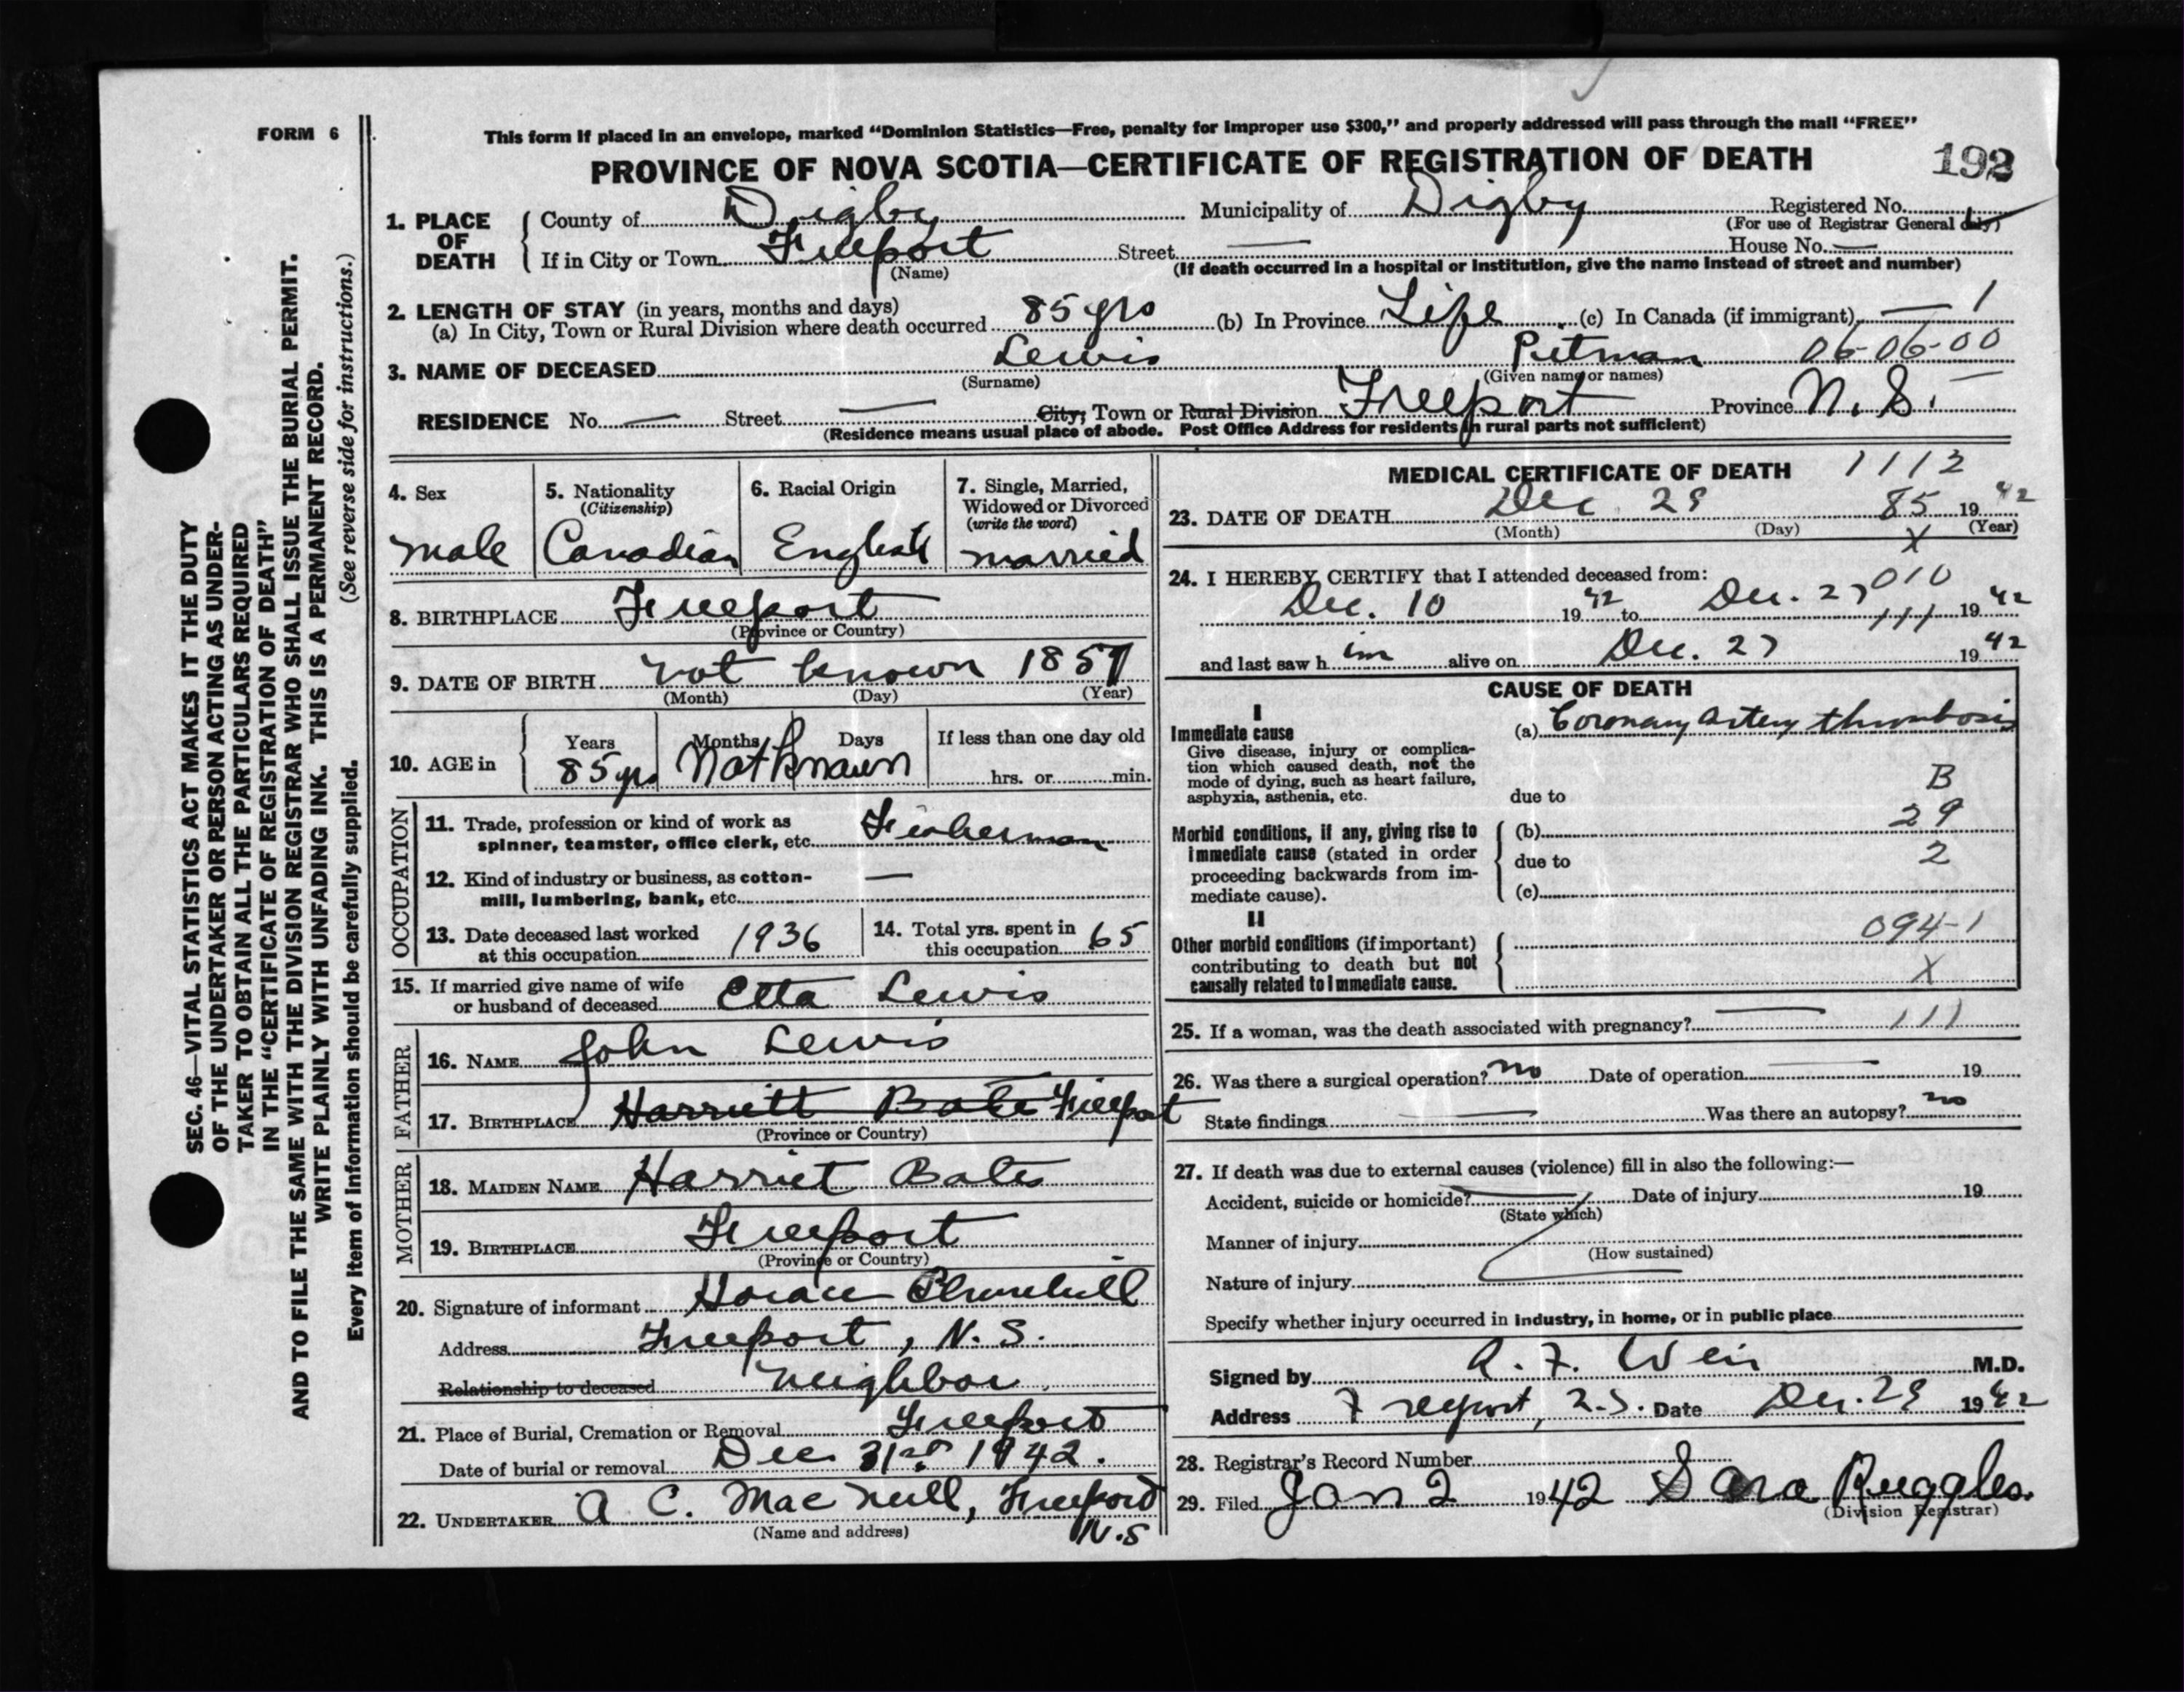 FORM 6
This form if placed in an envelope, marked “Dominion Statistics—Free, penalty for improper use $300,” and properly addressed will pass through the mail “FREE”
PROVINCE OF NOVA SCOTIA—CERTIFICATE OF REGISTRATION OF DEATH
192
1. PLACE OF DEATH
County of Digby Municipality of Digby Registered No.
(For use of Registrar General only)
If in City or Town Freeport Street — House No. —
(Name) (If death occurred in a hospital or institution, give the name instead of street and number)
2. LENGTH OF STAY (in years, months and days)
(a) In City, Town or Rural Division where death occurred 85 yrs (b) In Province Life (c) In Canada (if immigrant) — 1
3. NAME OF DECEASED Lewis Putman 06-06-00
(Surname) (Given name or names)
RESIDENCE No. — Street — City; Town or Rural Division Freeport Province N.S. —
(Residence means usual place of abode. Post Office Address for residents in rural parts not sufficient)
4. Sex
male
5. Nationality
(Citizenship)
Canadian
6. Racial Origin
English
7. Single, Married,
Widowed or Divorced
(write the word)
married
8. BIRTHPLACE Freeport
(Province or Country)
9. DATE OF BIRTH not known 1857
(Month) (Day) (Year)
10. AGE in
Years Months Days If less than one day old
85 yrs Not Known hrs. or min.
OCCUPATION
11. Trade, profession or kind of work as
spinner, teamster, office clerk, etc. Fisherman
12. Kind of industry or business, as cotton- —
mill, lumbering, bank, etc.
13. Date deceased last worked
at this occupation 1936
14. Total yrs. spent in
this occupation 65
15. If married give name of wife
or husband of deceased Etta Lewis
FATHER
16. NAME John Lewis
17. BIRTHPLACE Harriett Bate Freeport
(Province or Country)
MOTHER
18. MAIDEN NAME Harriet Bates
19. BIRTHPLACE Freeport
(Province or Country)
20. Signature of informant Horace Churchill
Address Freeport, N.S.
Relationship to deceased neighbor
21. Place of Burial, Cremation or Removal Freeport
Date of burial or removal Dec 31st 1942.
22. UNDERTAKER A C. MacNeill, Freeport
(Name and address) N.S
MEDICAL CERTIFICATE OF DEATH 1112
23. DATE OF DEATH Dec 29 85 1942
(Month) (Day) (Year)
X
24. I HEREBY CERTIFY that I attended deceased from: 010
Dec. 10 1942 to Dec. 27 1942
111
and last saw him alive on Dec. 27 1942
CAUSE OF DEATH
I
Immediate cause (a) Coronary artery thrombosis
Give disease, injury or complica-
tion which caused death, not the
mode of dying, such as heart failure,
asphyxia, asthenia, etc.
due to B
Morbid conditions, if any, giving rise to (b) 29
immediate cause (stated in order due to 2
proceeding backwards from im-
mediate cause). (c)
II
Other morbid conditions (if important) 094-1
contributing to death but not
causally related to immediate cause. X
25. If a woman, was the death associated with pregnancy? — 111
26. Was there a surgical operation? no Date of operation — 19
State findings — Was there an autopsy? no
27. If death was due to external causes (violence) fill in also the following:—
Accident, suicide or homicide? — Date of injury 19
(State which)
Manner of injury
(How sustained)
Nature of injury
Specify whether injury occurred in industry, in home, or in public place
Signed by A. F. Weir M.D.
Address Freeport, N.S. Date Dec. 29 1942
28. Registrar’s Record Number
29. Filed Jan 2 1942 Sara Ruggles.
(Division Registrar)
SEC. 46—VITAL STATISTICS ACT MAKES IT THE DUTY
OF THE UNDERTAKER OR PERSON ACTING AS UNDER-
TAKER TO OBTAIN ALL THE PARTICULARS REQUIRED
IN THE “CERTIFICATE OF REGISTRATION OF DEATH”
AND TO FILE THE SAME WITH THE DIVISION REGISTRAR WHO SHALL ISSUE THE BURIAL PERMIT.
WRITE PLAINLY WITH UNFADING INK. THIS IS A PERMANENT RECORD.
Every item of information should be carefully supplied. (See reverse side for instructions.)